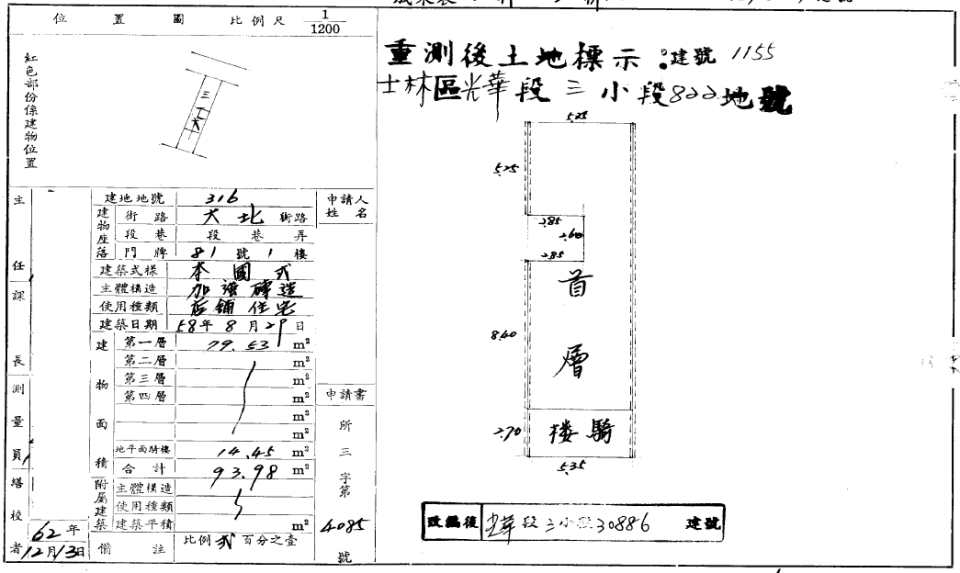 位置圖 比例尺 1/1200
紅色部份係建物位置
三
大
主任課長
測量員
繕校者
62年
12月13日
建地地號 316
建物座落
街路 大北 街路
段巷 段 巷 弄
門牌 81 號 1 樓
建築式樣 本國式
主體構造 加強磚造
使用種類 店鋪住宅
建築日期 58年8月29日
建物面積
第一層 79.53 m²
第二層 m²
第三層 m²
第四層 m²
m²
m²
地平面騎樓 14.45 m²
合計 93.98 m²
附屬建築
主體構造
使用種類
建築平積 m²
備註 比例貳百分之壹
申請人姓名
申請書
所
三
字第
4085
號
重測後土地標示:建號 1155
士林區光華段三小段822地號
5.25
5.25
2.85
2.60
2.85
首
8.40
層
2.70
楼騎
5.35
改編後 光華段三小段30886 建號